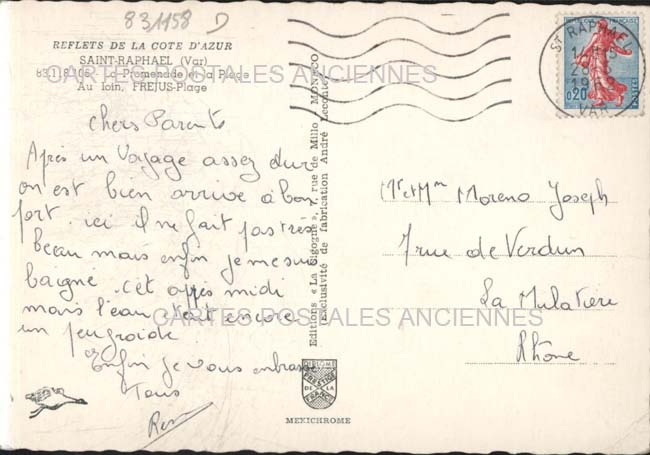 831158 D
REFLETS DE LA COTE D'AZUR
SAINT-RAPHAEL (Var)
La Promenade et la Plage
Au loin, FREJUS-Plage
CARTES POSTALES ANCIENNES
chers Parents
Après un Voyage assez dur
on est bien arrivé à bon
port. ici il ne fait pas très
beau mais enfin je me suis
baigné. cet après midi
mais l'eau était encore
un peu froide
Enfin je vous embrasse
Tous
Editions « La Cigogne », 7, rue de Millo - MONACO
Exclusivité de fabrication André Leconte
DIPLOME
PRESTIGE
DE LA
FRANCE
MEXICHROME
ST RAPHAEL
VAR
0,20
POSTES
Mr et Mme Moreno Joseph
7 rue de Verdun
La Mulatière
Rhône
CARTES POSTALES ANCIENNES